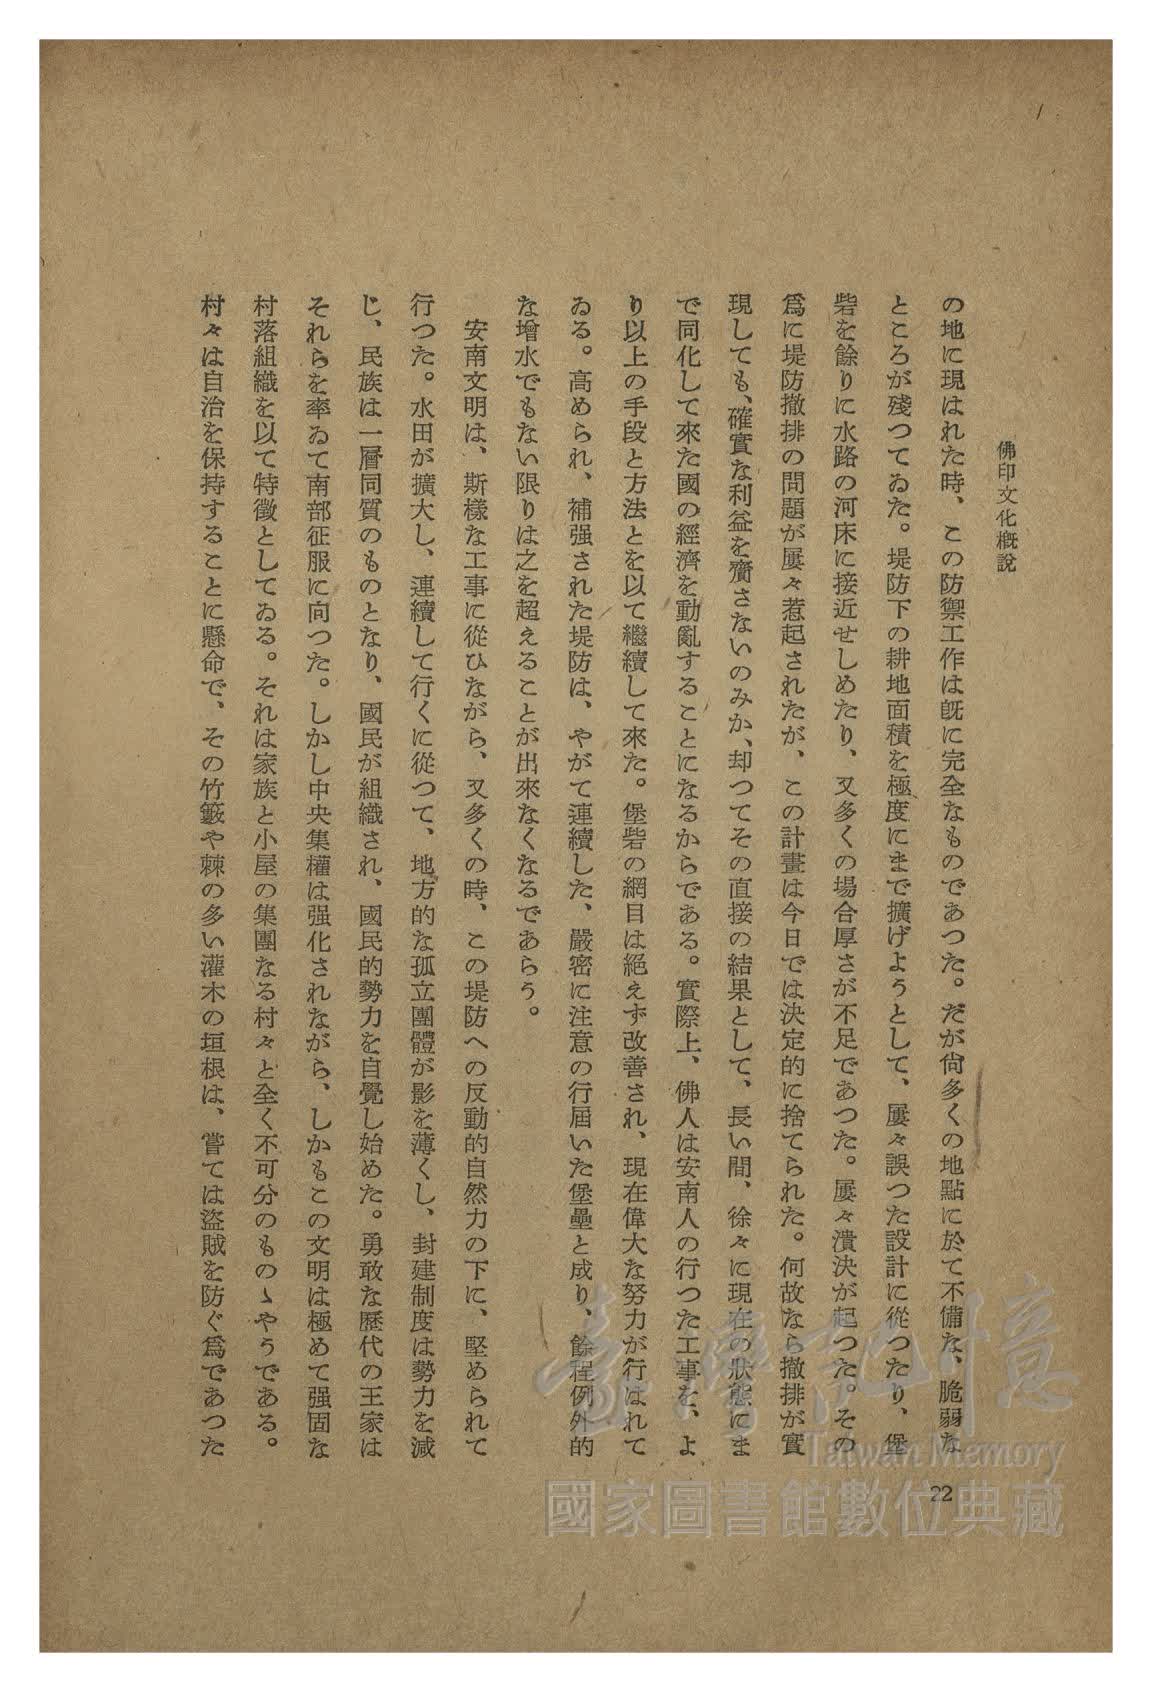 佛印文化概說
の地に現はれた時、この防禦工作は既に完全なものであつた。だが尙多くの地點に於て不備な、脆弱な
ところが殘つてゐた。堤防下の耕地面積を極度にまで擴げようとして、屢々誤つた設計に從つたり、堡
砦を餘りに水路の河床に接近せしめたり、又多くの場合厚さが不足であつた。屢々潰決が起つた。その
爲に堤防撤排の問題が屢々惹起されたが、この計畫は今日では決定的に捨てられた。何故なら撤排が實
現しても、確實な利益を齎さないのみか、却つてその直接の結果として、長い間、徐々に現在の狀態にま
で同化して來た國の經濟を動亂することになるからである。實際上、佛人は安南人の行つた工事を、よ
り以上の手段と方法とを以て繼續して來た。堡砦の網目は絕えず改善され、現在偉大な努力が行はれて
ゐる。高められ、補强された堤防は、やがて連續した、嚴密に注意の行屆いた堡壘と成り、餘程例外的
な增水でもない限りは之を超えることが出來なくなるであらう。
安南文明は、斯樣な工事に從ひながら、又多くの時、この堤防への反動的自然力の下に、堅められて
行つた。水田が擴大し、連續して行くに從つて、地方的な孤立團體が影を薄くし、封建制度は勢力を減
じ、民族は一層同質のものとなり、國民が組織され、國民的勢力を自覺し始めた。勇敢な歷代の王家は
それらを率ゐて南部征服に向つた。しかし中央集權は强化されながら、しかもこの文明は極めて强固な
村落組織を以て特徵としてゐる。それは家族と小屋の集團なる村々と全く不可分のものゝやうである。
村々は自治を保持することに懸命で、その竹籔や棘の多い灌木の垣根は、嘗ては盜賊を防ぐ爲であつた
22
臺灣記憶
Taiwan Memory
國家圖書館數位典藏